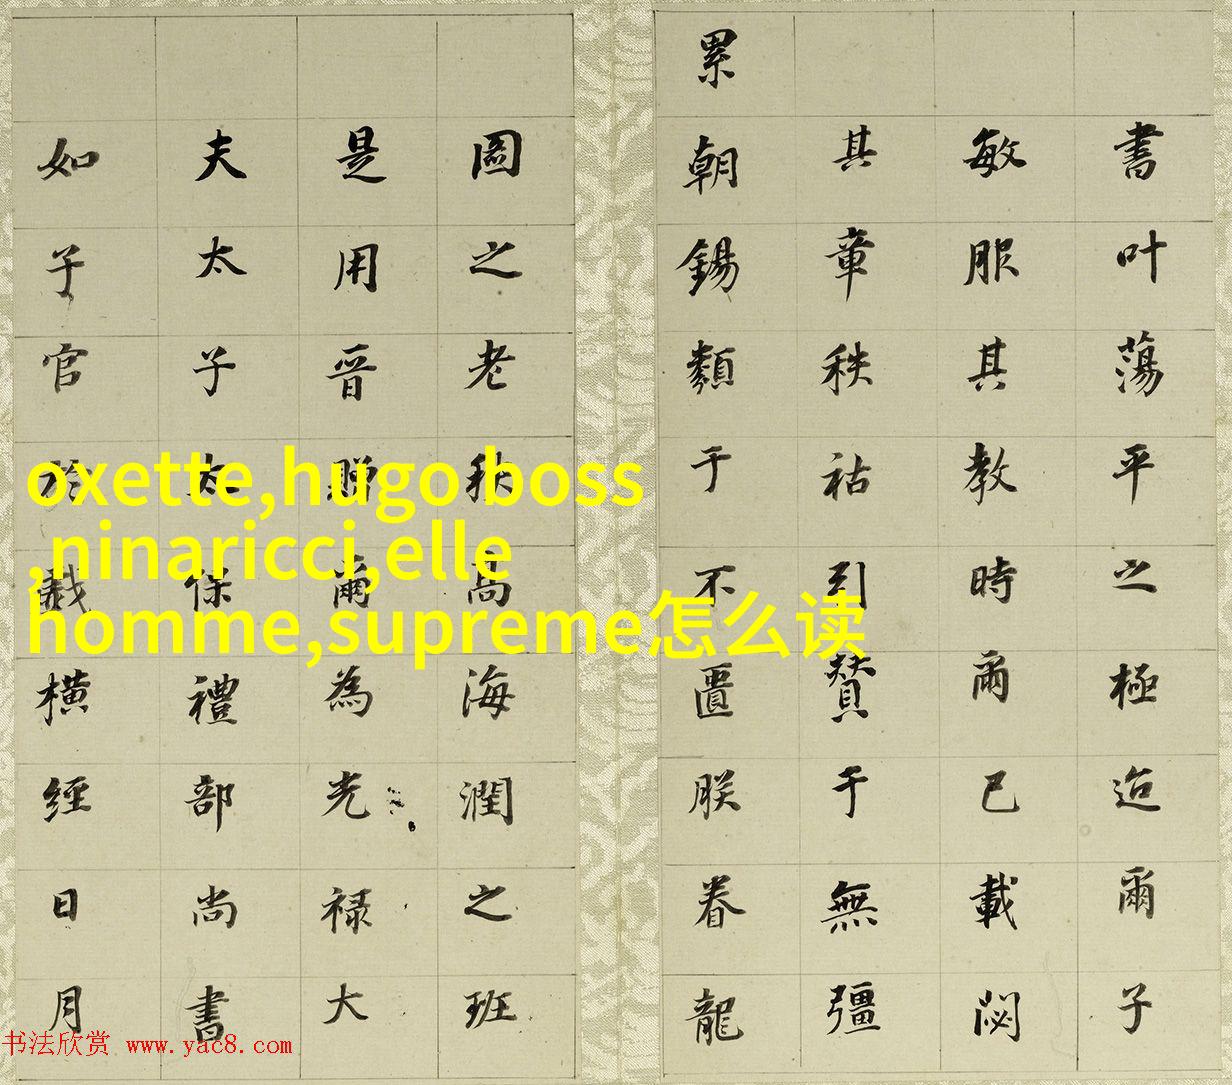 書叶蕩平之極迨爾子
敏服其教時爾已載閟
其章秩祜引贊于無彊
累朝錫類于不匱朕眷龍
圖之老秩高海潤之班
是用晉贈爾為光禄大
夫太子太保禮部尚書
如子官於戲橫經日月
oxette,hugo boss
,ninaricci,elle
homme,supreme怎么读
书法欣赏 www.yac8.com